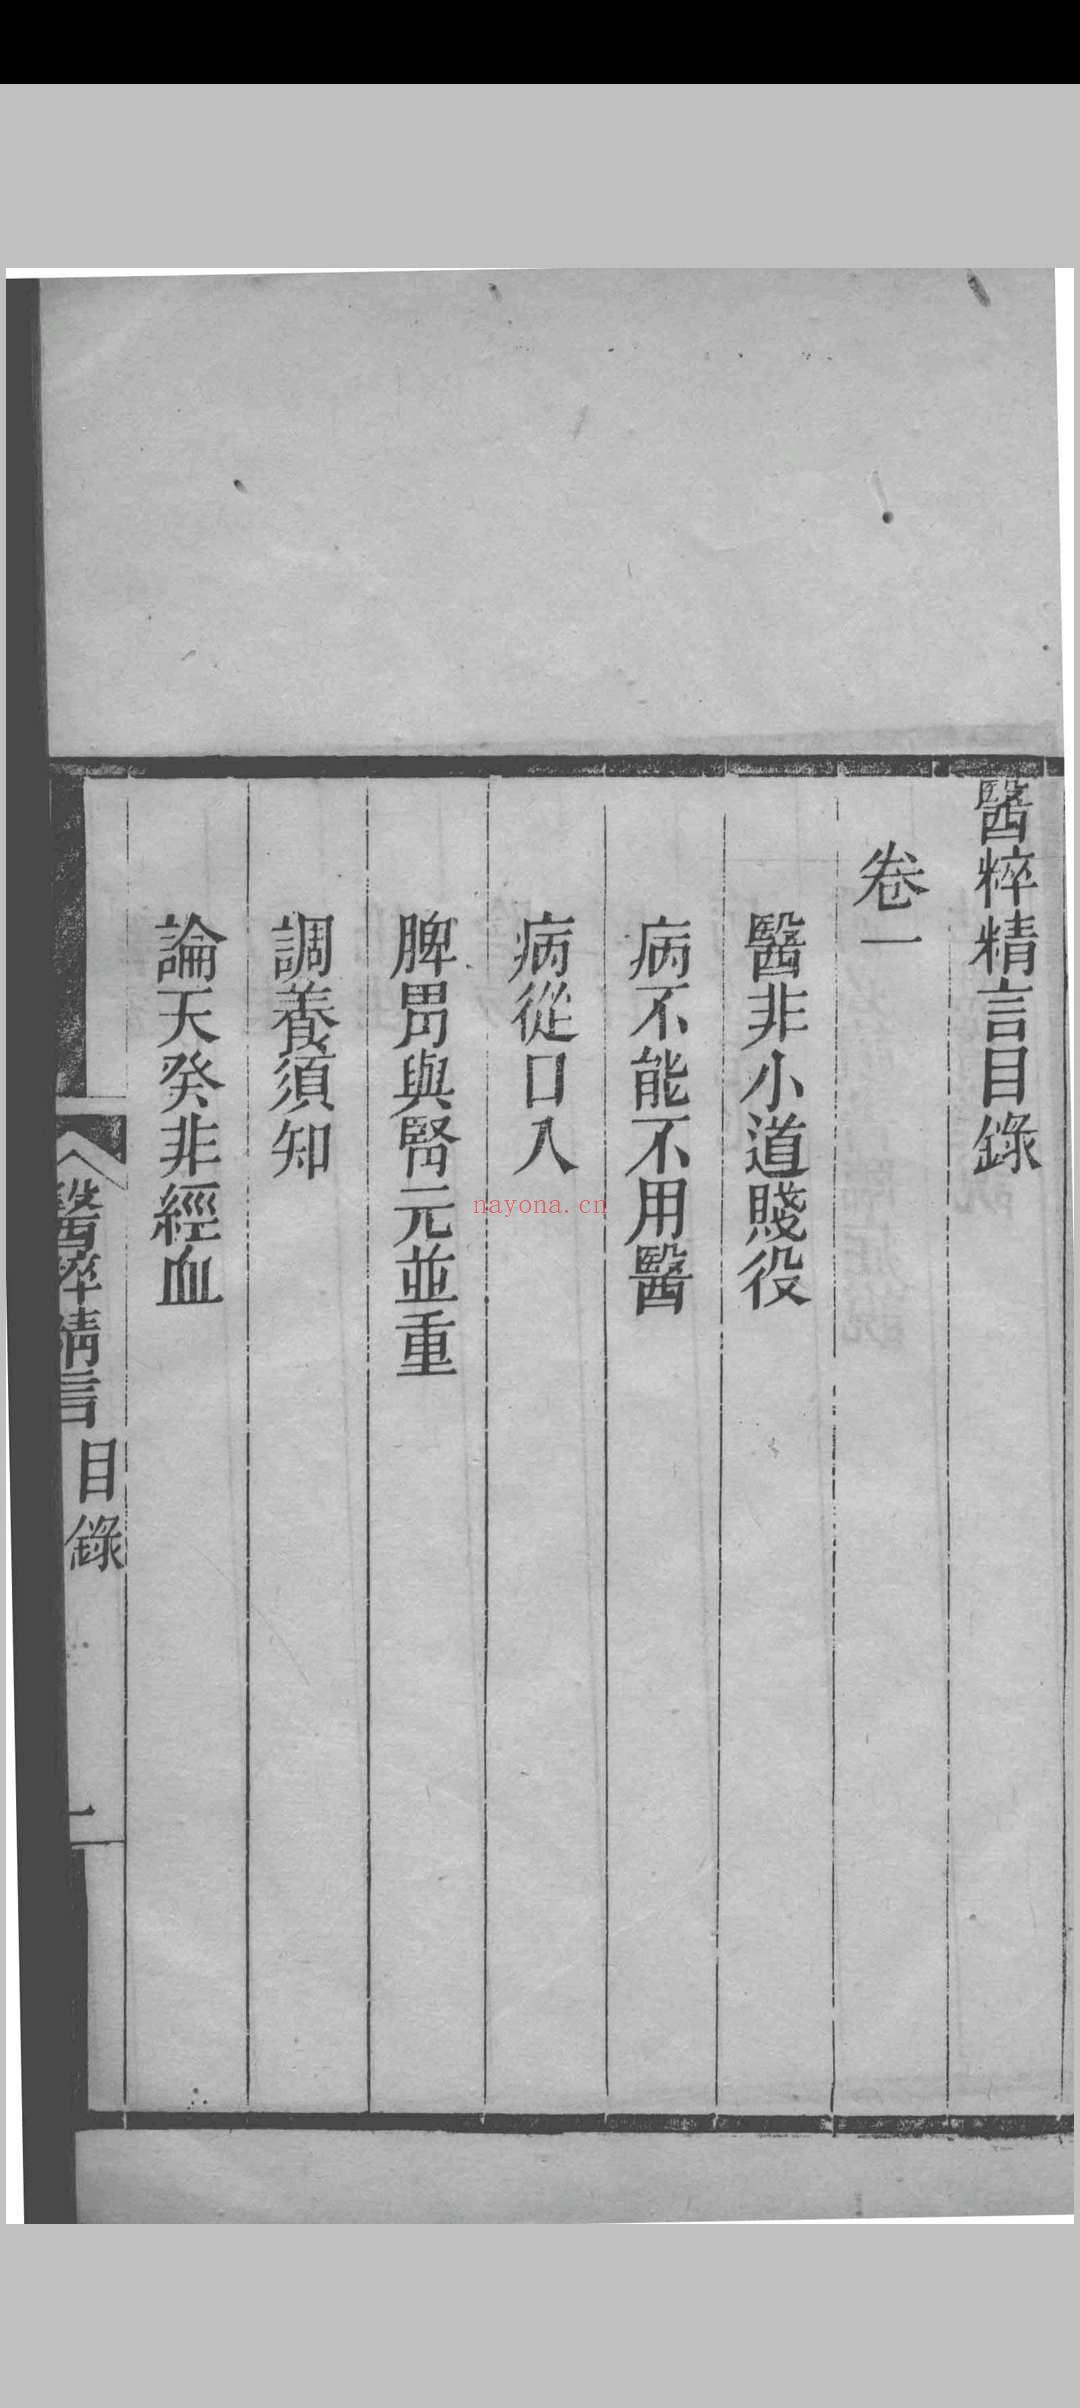 醫粹精言目錄
卷一
醫非小道賤役
病不能不用醫
病從口入
脾胃與腎元並重
調養須知
論天癸非經血
醫粹精言
目錄
一
nayona.cn